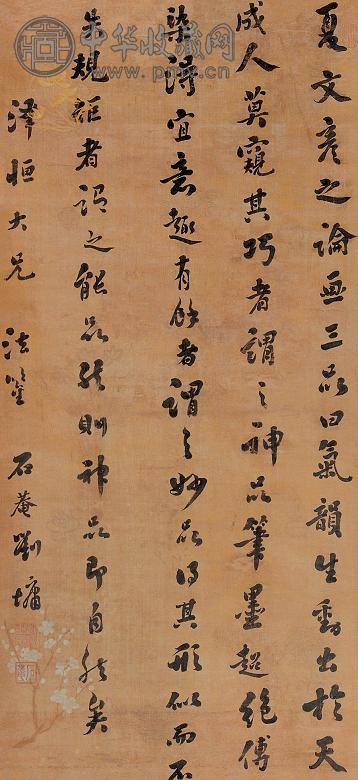 夏文彦之論画三品曰氣韻生動出於天
成人莫窺其巧者謂之神品筆墨超絕傅
染得宜意趣有餘者謂之妙品得其形似而不
失規矩者謂之能品然則神品即自然矣
澤恒大兄法鑒 石菴劉墉
中华收藏网